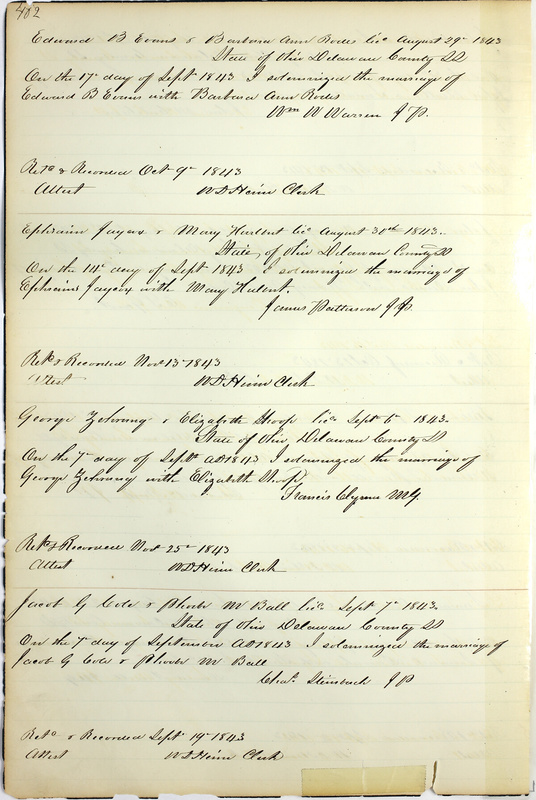 402
Edward B Evans & Barbara Ann Rodes Lic. August 29th 1843
State of Ohio Delaware County SS
On the 17th day of Sept 1843 I solemnized the marriage of
Edward B Evans with Barbara Ann Rodes
Wm W Warren J P.
Retd & Recorded Oct 9th 1843
Attest W D Heim Clerk
Ephraim Jaycox & Mary Hurlbert Lic August 30th 1843.
State of Ohio Delaware County SS
On the 14th day of Sept 1843 I solemnized the marriage of
Ephraim Jaycox with Mary Hulbert.
James Patterson J.P.
Retd & Recorded Nov 13th 1843
Attest W D Heim Clerk
George & Elizabeth Shoop Lic Sept 6th 1843.
State of Ohio Delaware County SS
On the 7th day of Sept AD 1843 I solemnized the marriage of
George with Elizabeth Shoop
Francis Clymer MG.
Retd & Recorded Nov 25th 1843
Attest W D Heim Clerk
Jacob G Cole & Phoebe M Ball Lic Sept 7th 1843.
State of Ohio Delaware County SS
On the 7th day of September AD 1843 I solemnized the marriage of
Jacob G Cole & Phoebe M Ball
Chas. Steinback J P
Retd & Recorded Sept 19th 1843
Attest W D Heim Clerk